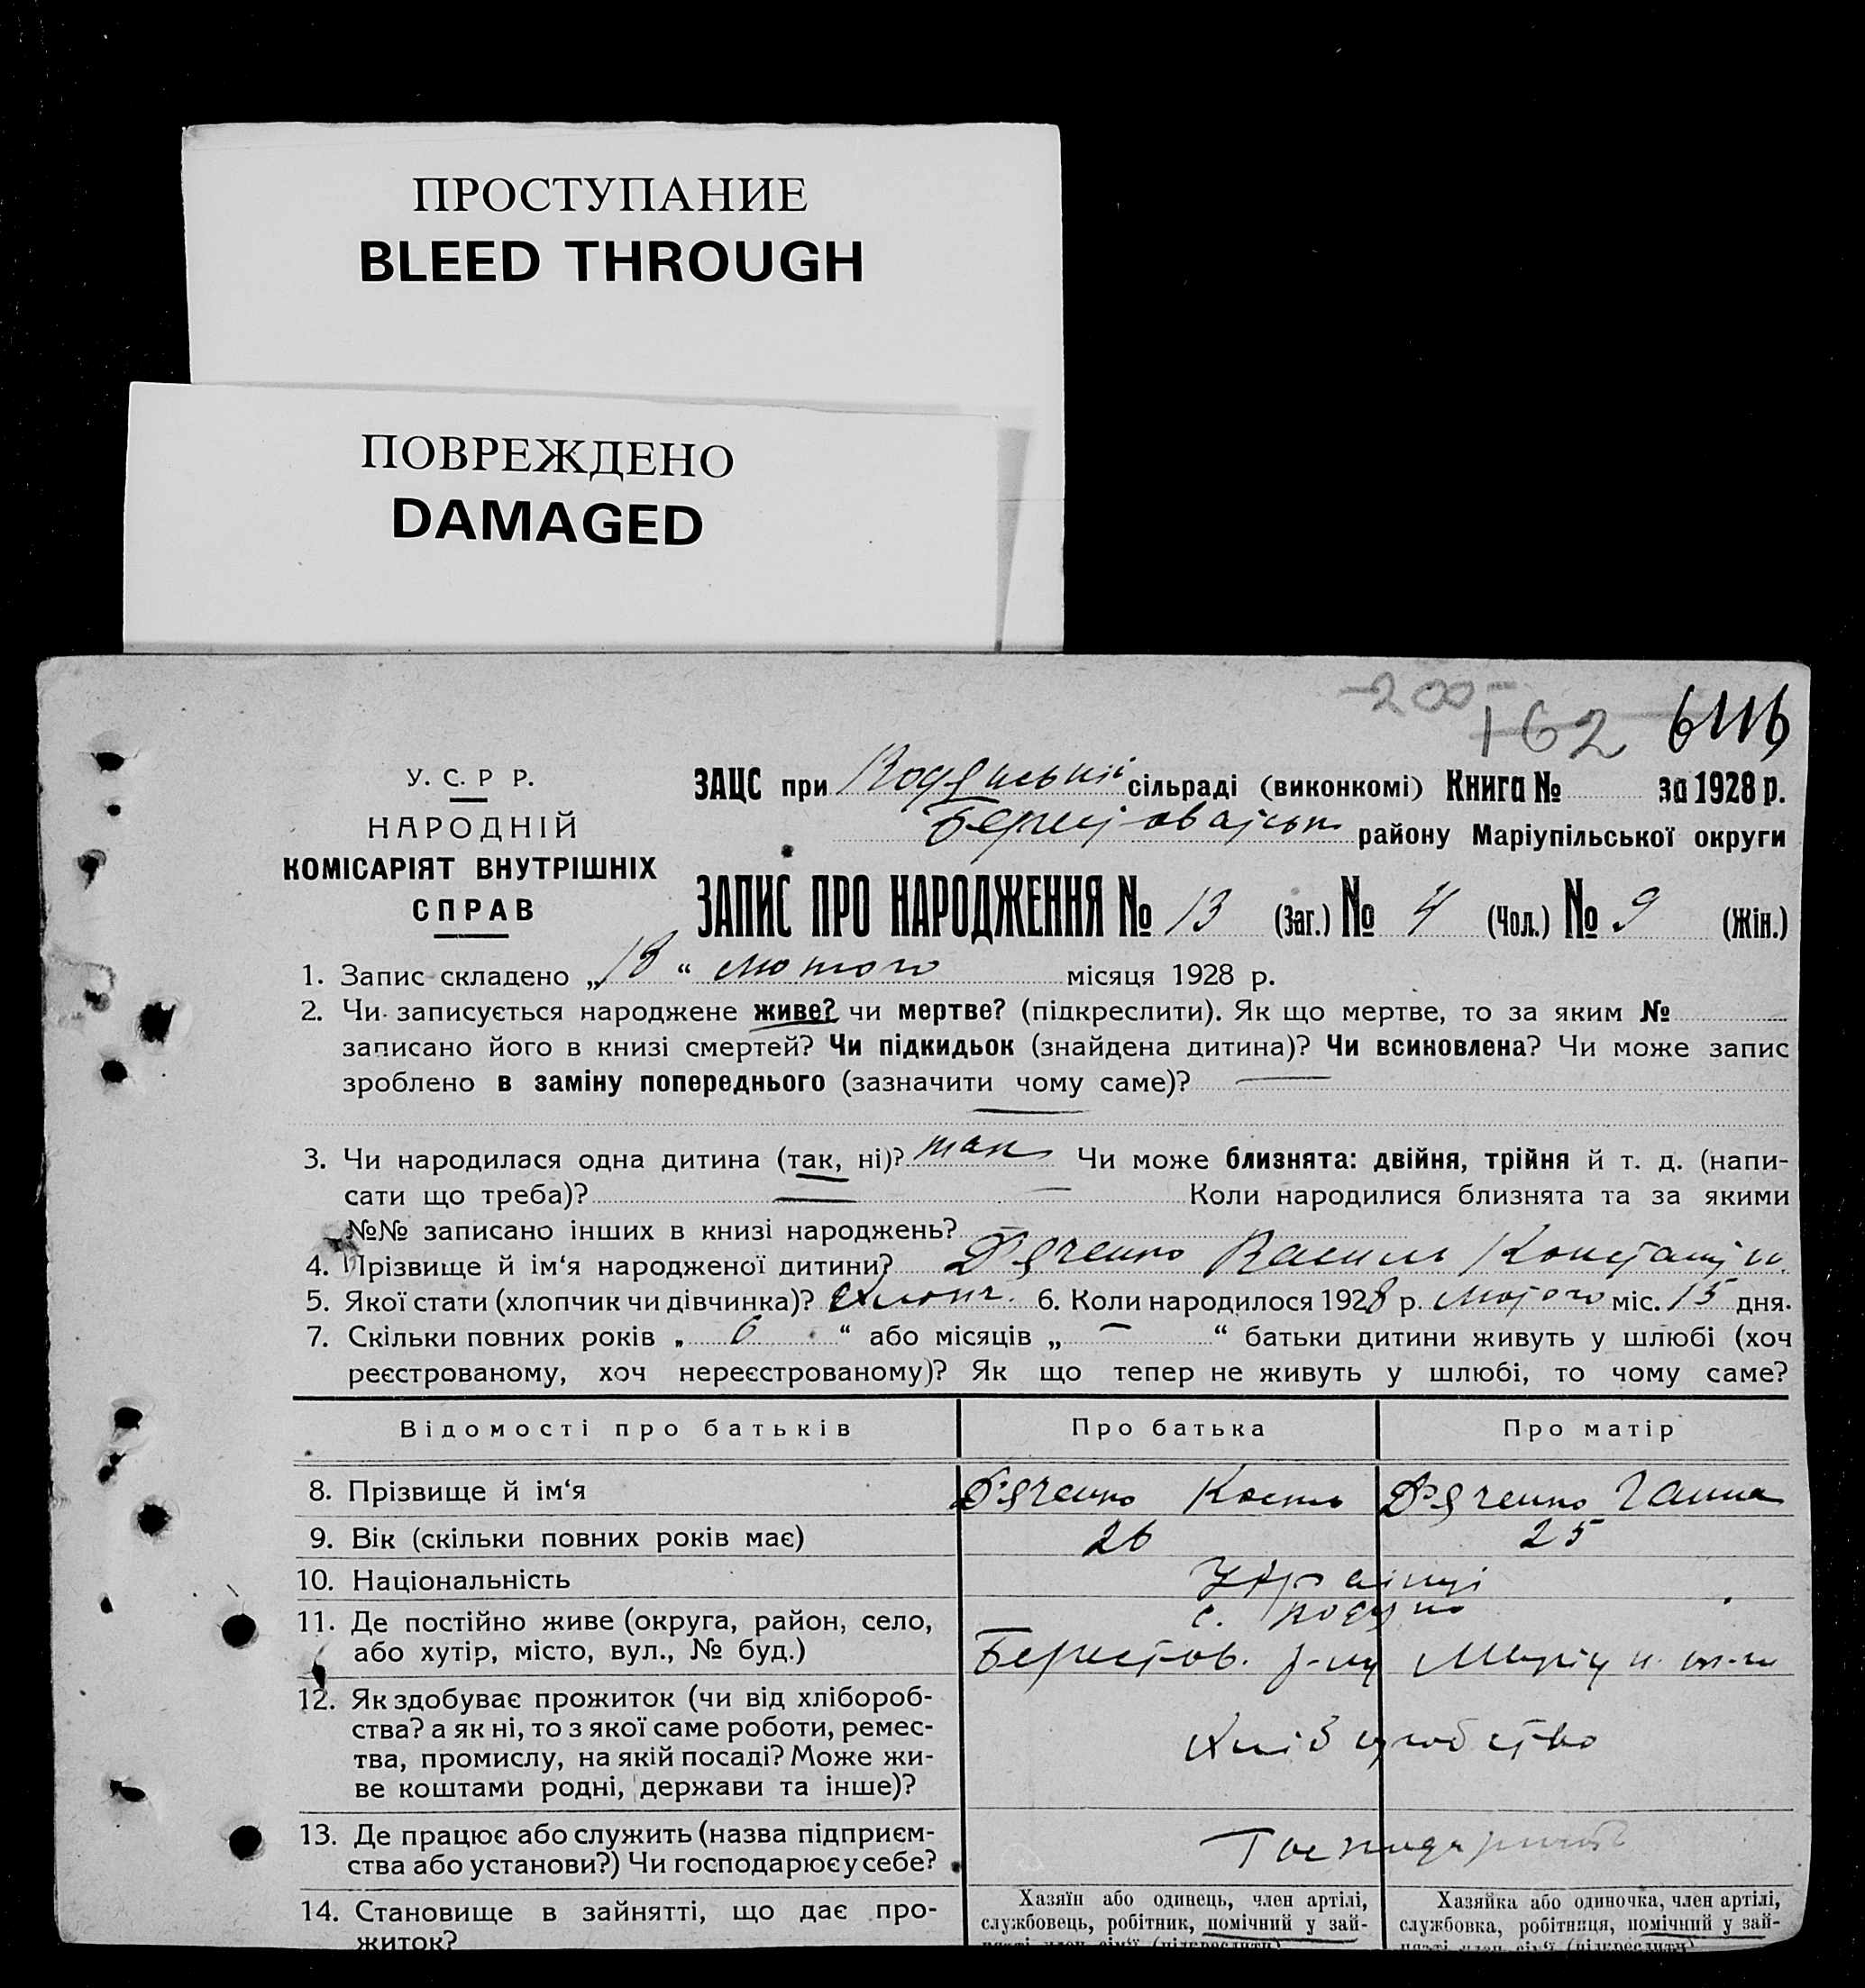 ПРОСТУПАНИЕ
BLEED THROUGH
ПОВРЕЖДЕНО
DAMAGED
-200-
162
У. С. Р Р.
НАРОДНІЙ
КОМІСАРІЯТ ВНУТРІШНІХ
СПРАВ
ЗАЦС при сільраді (виконкомі) Книга № за 1928 р.
району Маріупільської округи
ЗАПИС ПРО НАРОДЖЕННЯ № 13 (Заг.) № 4 (Чол.) № 9 (Жін.)
1. Запис складено „18“ лютого місяця 1928 р.
2. Чи записується народжене живе? чи мертве? (підкреслити). Як що мертве, то за яким №
записано його в книзі смертей? Чи підкидьок (знайдена дитина)? Чи всиновлена? Чи може запис
зроблено в заміну попереднього (зазначити чому саме)? —
3. Чи народилася одна дитина (так, ні)? так Чи може близнята: двійня, трійня й т. д. (напи-
сати що треба)? — Коли народилися близнята та за якими
№№ записано інших в книзі народжень?
4. Прізвище й ім‘я народженої дитини? Д'яченко Василь Констатін.
5. Якої стати (хлопчик чи дівчинка)? Хлопч. 6. Коли народилося 1928 р. лютого міс. 15 дня.
7. Скільки повних років „ 6 “ або місяців „ — “ батьки дитини живуть у шлюбі (хоч
реєстрованому, хоч нереєстрованому)? Як що тепер не живуть у шлюбі, то чому саме?
Відомості про батьків Про батька Про матір
8. Прізвище й ім‘я Д'яченко Кость Д'яченко Ганна
9. Вік (скільки повних років має) 26 25
10. Національність Українці
11. Де постійно живе (округа, район, село,
або хутір, місто, вул., № буд.) Берестов. р-ну
12. Як здобуває прожиток (чи від хлібороб-
ства? а як ні, то з якої саме роботи, ремес-
тва, промислу, на якій посаді? Може жи-
ве коштами родні, держави та інше)?
Хліборобство
13. Де працює або служить (назва підприєм-
ства або установи?) Чи господарює у себе?
14. Становище в зайнятті, що дає про-
житок?
Хазяїн або одинець, член артілі,
службовець, робітник, помічний у зай-
нятті член сім‘ї (підкреслити)
Хазяйка або одиночка, член артілі,
службовка, робітниця, помічний у зай-
нятті член сім‘ї (підкреслити)